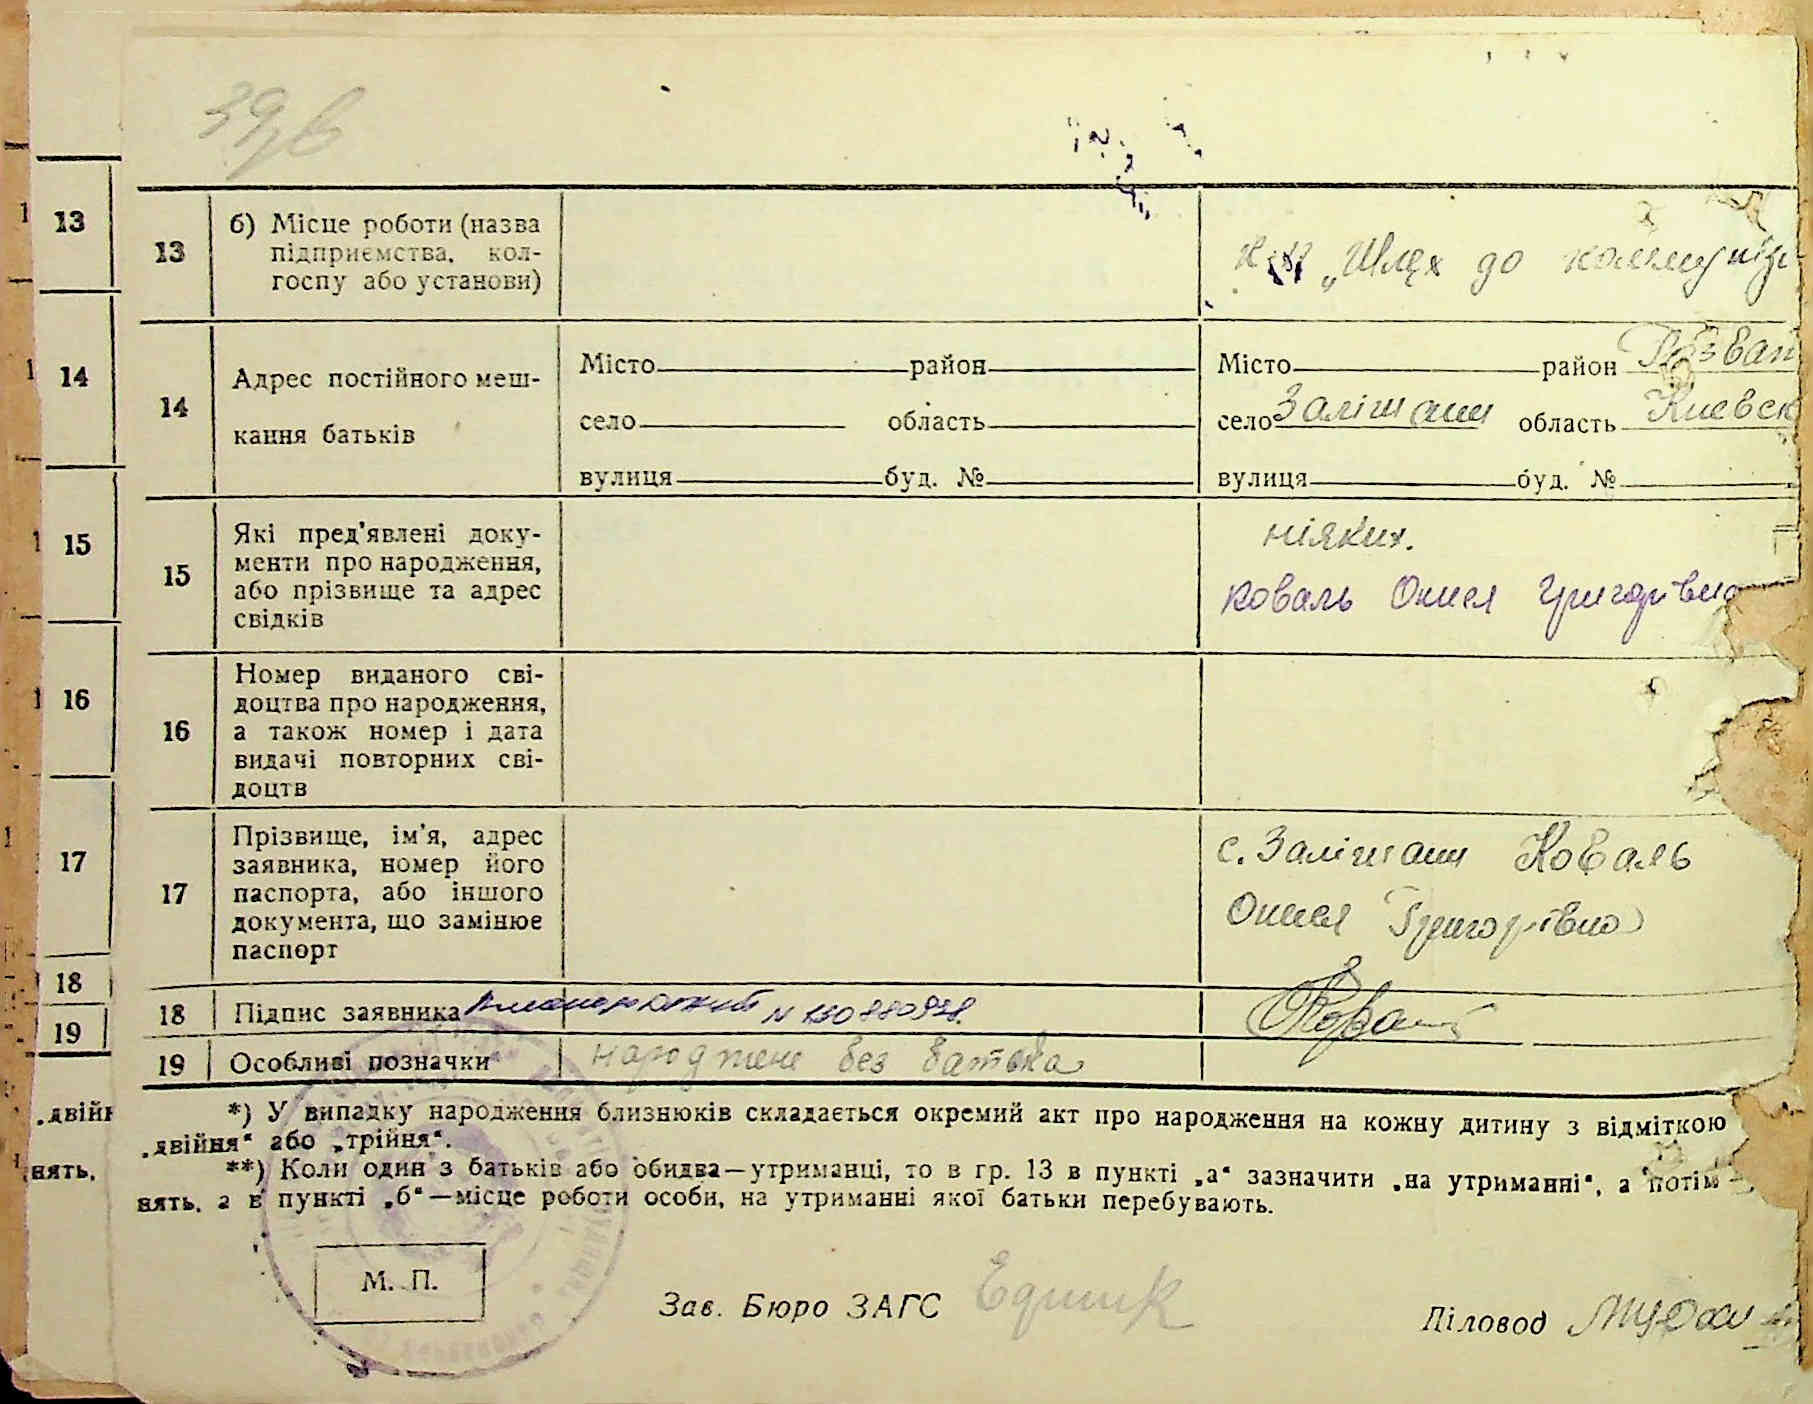 39,в
13
14
15
16
17
18
19
.двійн
нять,
13 б) Місце роботи (назва
підприємства, кол-
госпу або установи)
„Шлях до комму
14 Адрес постійного меш-
кання батьків
Місто район
село область
вулиця буд. №
Місто район Розваж
село Залішани область Киевск
вулиця буд. №
15 Які пред'явлені доку-
менти про народження,
або прізвище та адрес
свідків
ніяких.
Коваль Онися Григорівна
16 Номер виданого сві-
доцтва про народження,
а також номер і дата
видачі повторних сві-
доцтв
17 Прізвище, ім'я, адрес
заявника, номер його
паспорта, або іншого
документа, що замінює
паспорт
с. Залішани Коваль
Онися Григорівна
18 Підпис заявника
19 Особливі позначки народжене без батька
*) У випадку народження близнюків складається окремий акт про народження на кожну дитину з відміткою
„двійня“ або „трійня“.
**) Коли один з батьків або обидва—утриманці, то в гр. 13 в пункті „а“ зазначити „на утриманні“, а потім
нять, а в пункті „б“—місце роботи особи, на утриманні якої батьки перебувають.
М. П.
Зав. Бюро ЗАГС
Діловод